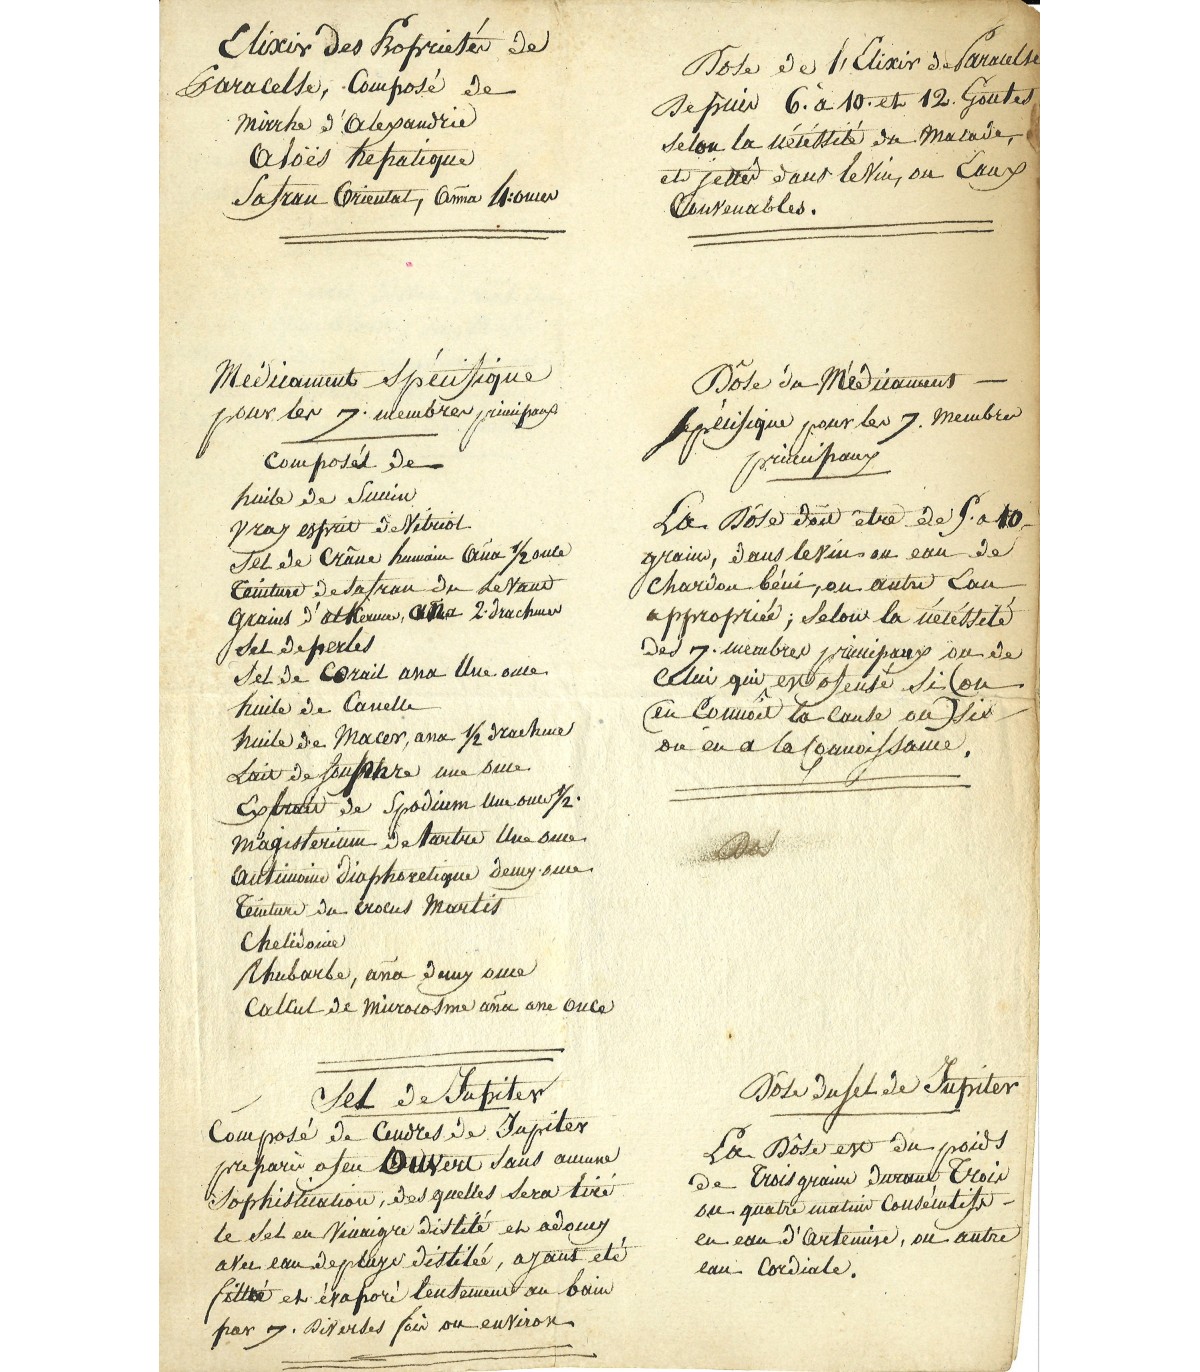 Elixir des Proprietés de
Paracelse, Composé de
Mirrhe d'Alexandrie
Aloës hepatique
Safran Oriental, Aña 4: onces
Dose de l'Elixir de Paracelse
Depuis 6. à 10. et 12. Goutes
selon la nécéssité du Malade,
et jettés dans le Vin, ou Eaux
Convenables.
Médicament spécifique
pour les 7. membres principaux
Composés de
huile de Succin
Vray esprit de Vitriol
Sel de Crâne humain Aña 1/2 once
Teinture de Safran du Levant
Grains d'alKermes, aña 2. drachmes
Sel de perles
Sel de Corail ana Une once
huile de Canelle
huile de Macer, ana 1/2 drachme
Lait de souphre une once
Extrait de Spodium Une once 1/2.
Magisterium de tartre Une once
Antimoine diaphoretique demy once
Teinture du crocus Martis
Chelidoine
Rhubarbe, aña demy once
Calcul de Microcosme aña une once
Dôse du Médicament
spécifique pour les 7. Membres
principaux
La Dôse doit être de 5. a 10
grains, dans le vin ou eau de
Chardon béni, ou autre Eau
appropriée; selon la nécéssité
des 7. membres principaux ou de
Celui qui est ofensé si (on
en Connoît la cause ou) si
on en a la Connoissance.
Dos
Sel de Jupiter
Composé de Cendres de Jupiter
preparés a feu Ouvert sans aucune
Sophistication, desquelles sera tiré
le Sel en Vinaigre distilé et adoucy
avec eau de pluye distilée, ayant eté
filtré et évaporé lentement au bain
par 7. Diverses fois ou environ
Dôse du sel de Jupiter
La Dôse est du poids
de Trois grains durant Trois
ou quatre matins Consécutifs
en eau d'Artemise, ou autre
eau Cordiale.